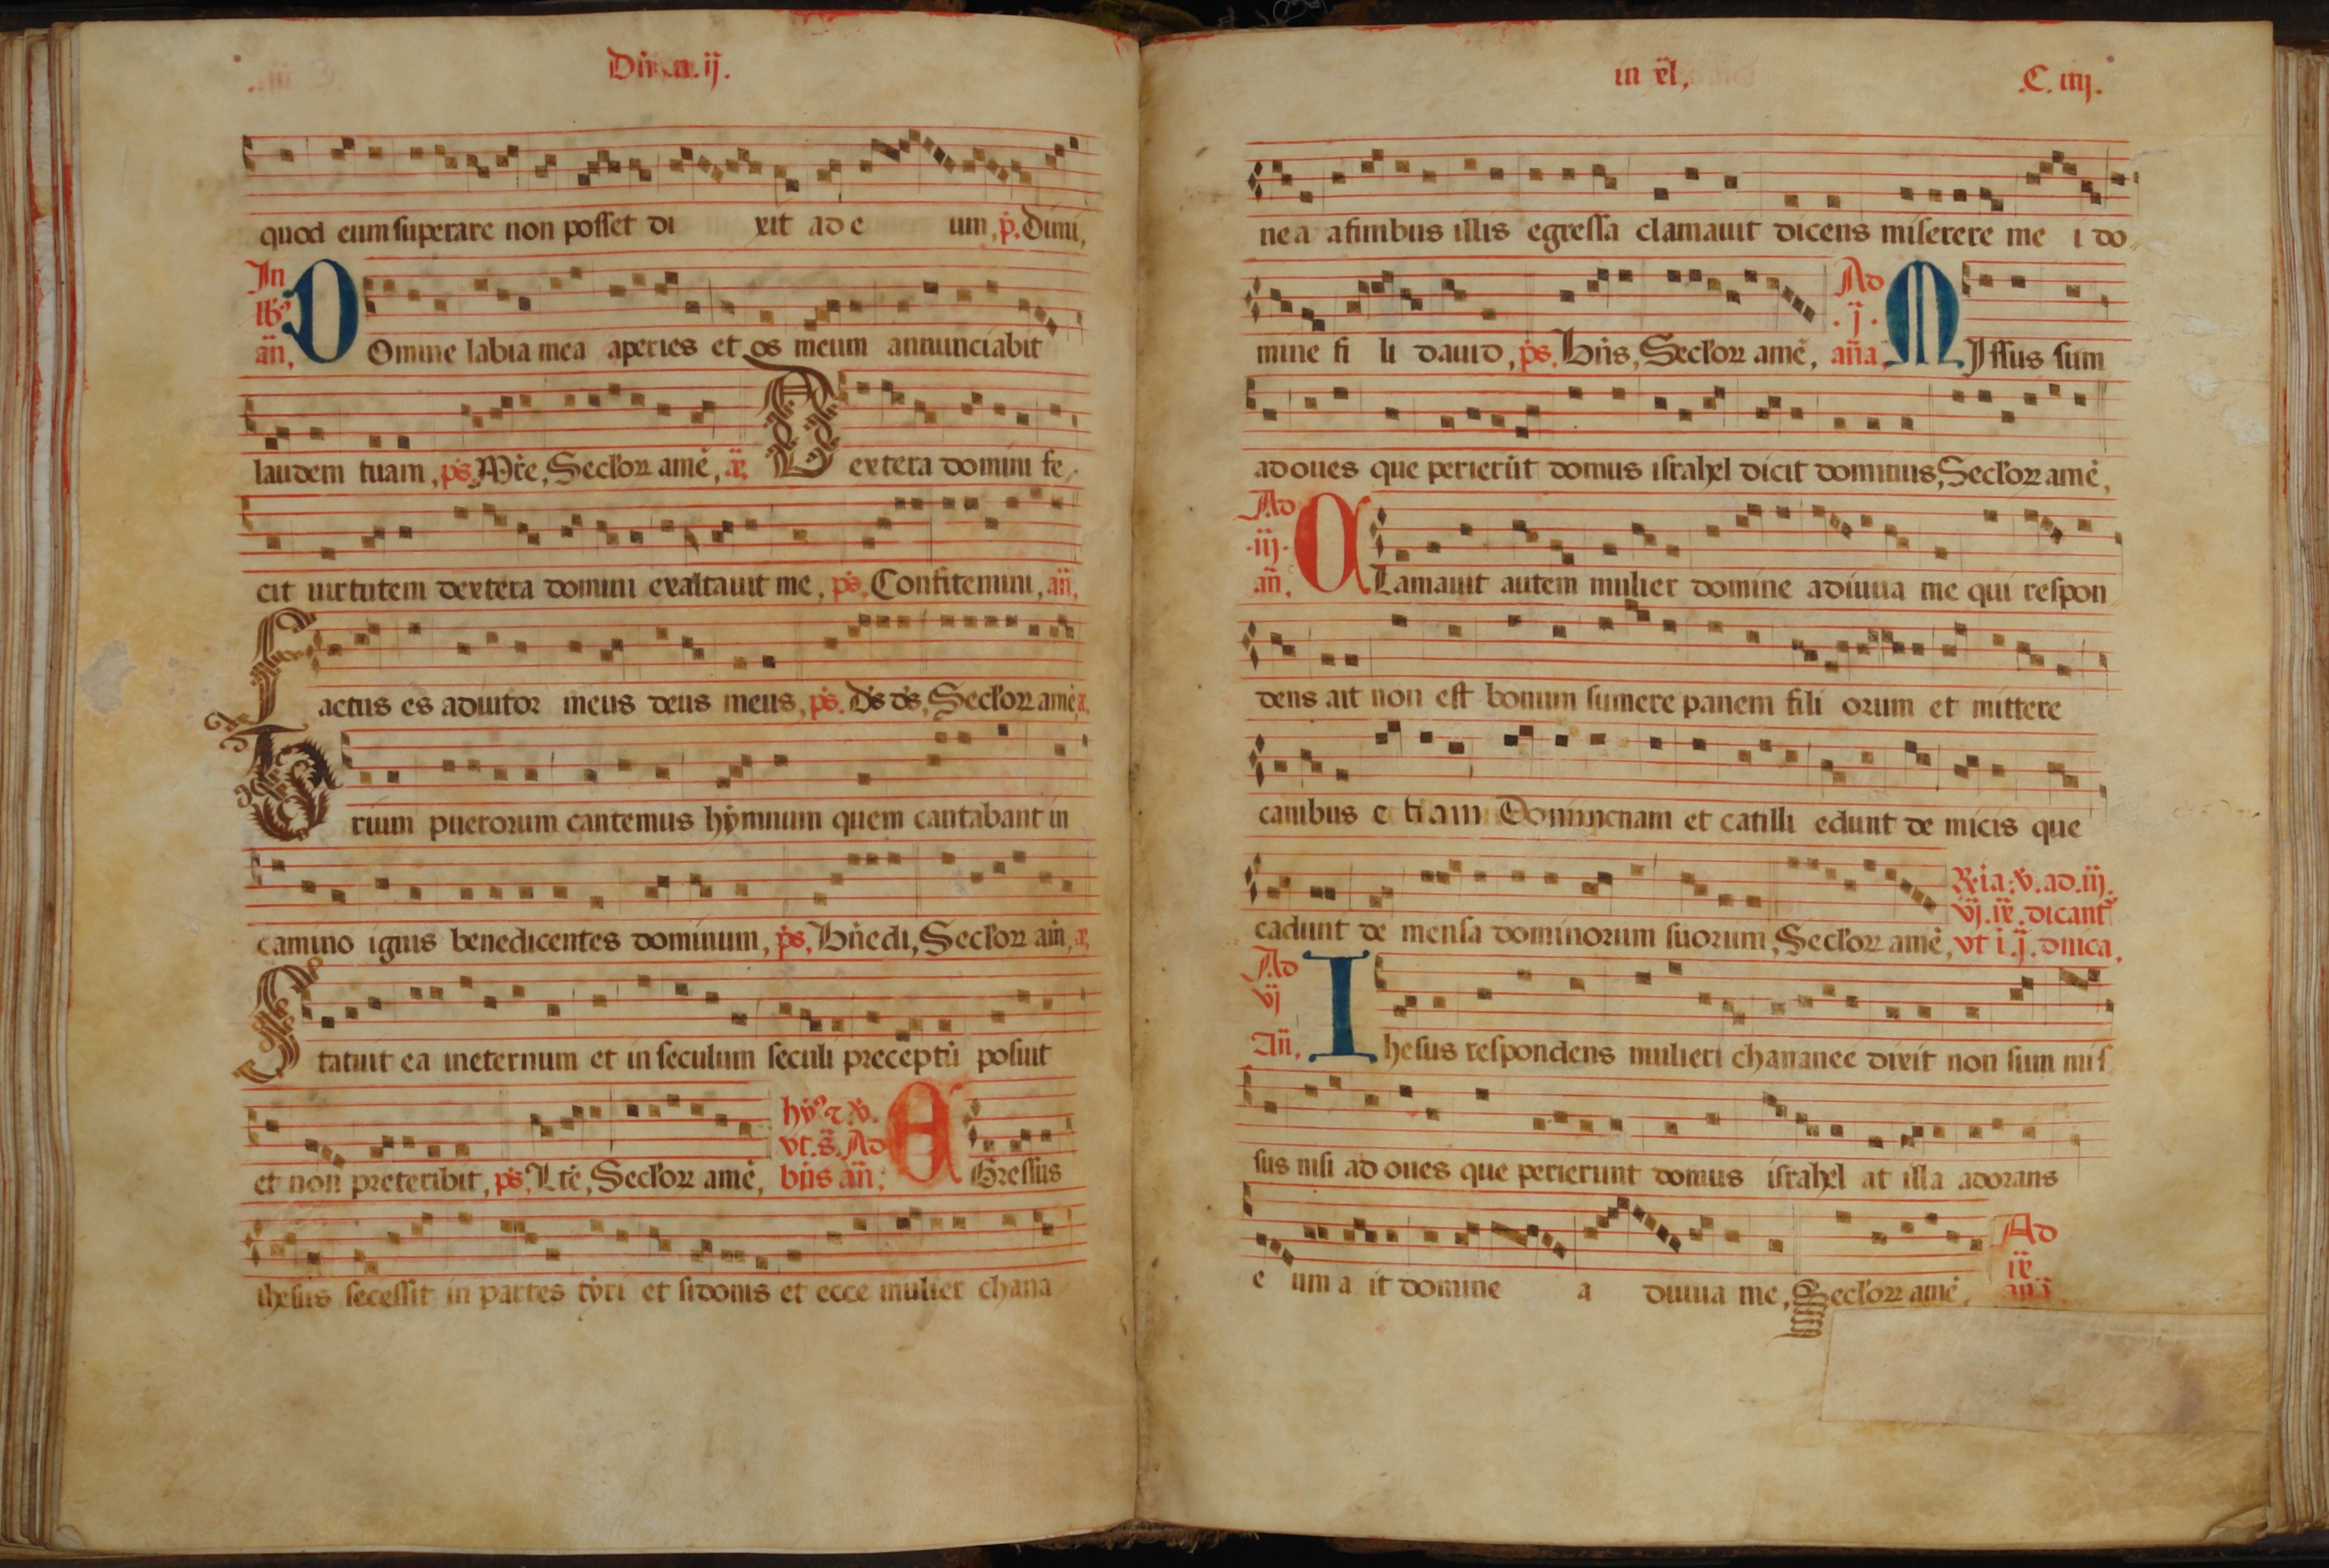 Dñica.ij.
quod eum superare non posset di xit ad e um, p̃. Dimi,
In
lbꝰ
añ,
Domine labia mea aperies et os meum annunciabit
laudem tuam, ps̃, Mr̃e, Secl'oꝝ amẽ, Dextera domini fe
cit uirtutem dextera domini exaltauit me, ps̃, Confitemini, añ,
Factus es adiutor meus deus meus, ps̃. Ds̃ ds̃, Secl'oꝝ amẽ,
Trium puerorum cantemus hẏmnum quem cantabant in
camino ignis benedicentes dominum, ps̃, Bñedi, Secl'oꝝ am̃,
Statuit ea ineternum et in seculum seculi preceptũ posuit
et non preteribit, ps̃, Ltẽ, Secl'oꝝ amẽ,
hẏꝰ ⁊ v̇.
vt. s̃. Ad
bñs añ;
EGressus
ihesus secessit in partes tẏri et sidonis et ecce mulier chana
in xl,
.C. iiij.
nea afinibus illis egressa clamauit dicens miserere me i do
mine fi li dauid, ps̃, Bñs, Secl'oꝝ amẽ,
Ad
.j.
aña,
MIssus sum
ad oues que perierũt domus israhel dicit dominus, Secl'oꝝ amẽ,
Ad
.iij.
añ,
CLamauit autem mulier domine adiuua me qui respon
dens ait non est bonum sumere panem fili orum et mittere
canibus e tiam Domine nam et catilli edunt de micis que
cadunt de mensa dominorum suorum, Secl'oꝝ amẽ,
R̃ia. v̇. ad. iij.
vj. ix. dicant᷑
vt i. j. dñica.
Ad
vj
Añ,
Ihesus respondens mulieri chananee dixit non sum mis
sus nisi ad oues que perierunt domus israhel at illa adorans
e um a it domine a diuua me, Secl'oꝝ amẽ,
Ad
ix
añã